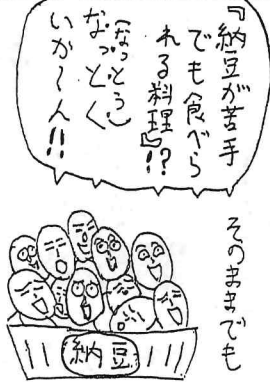 『納豆が苦手
でも食べら
れる料理』!?
(なっとう)
なっ゛とく
いか〜ん!!
そのままでも
納豆